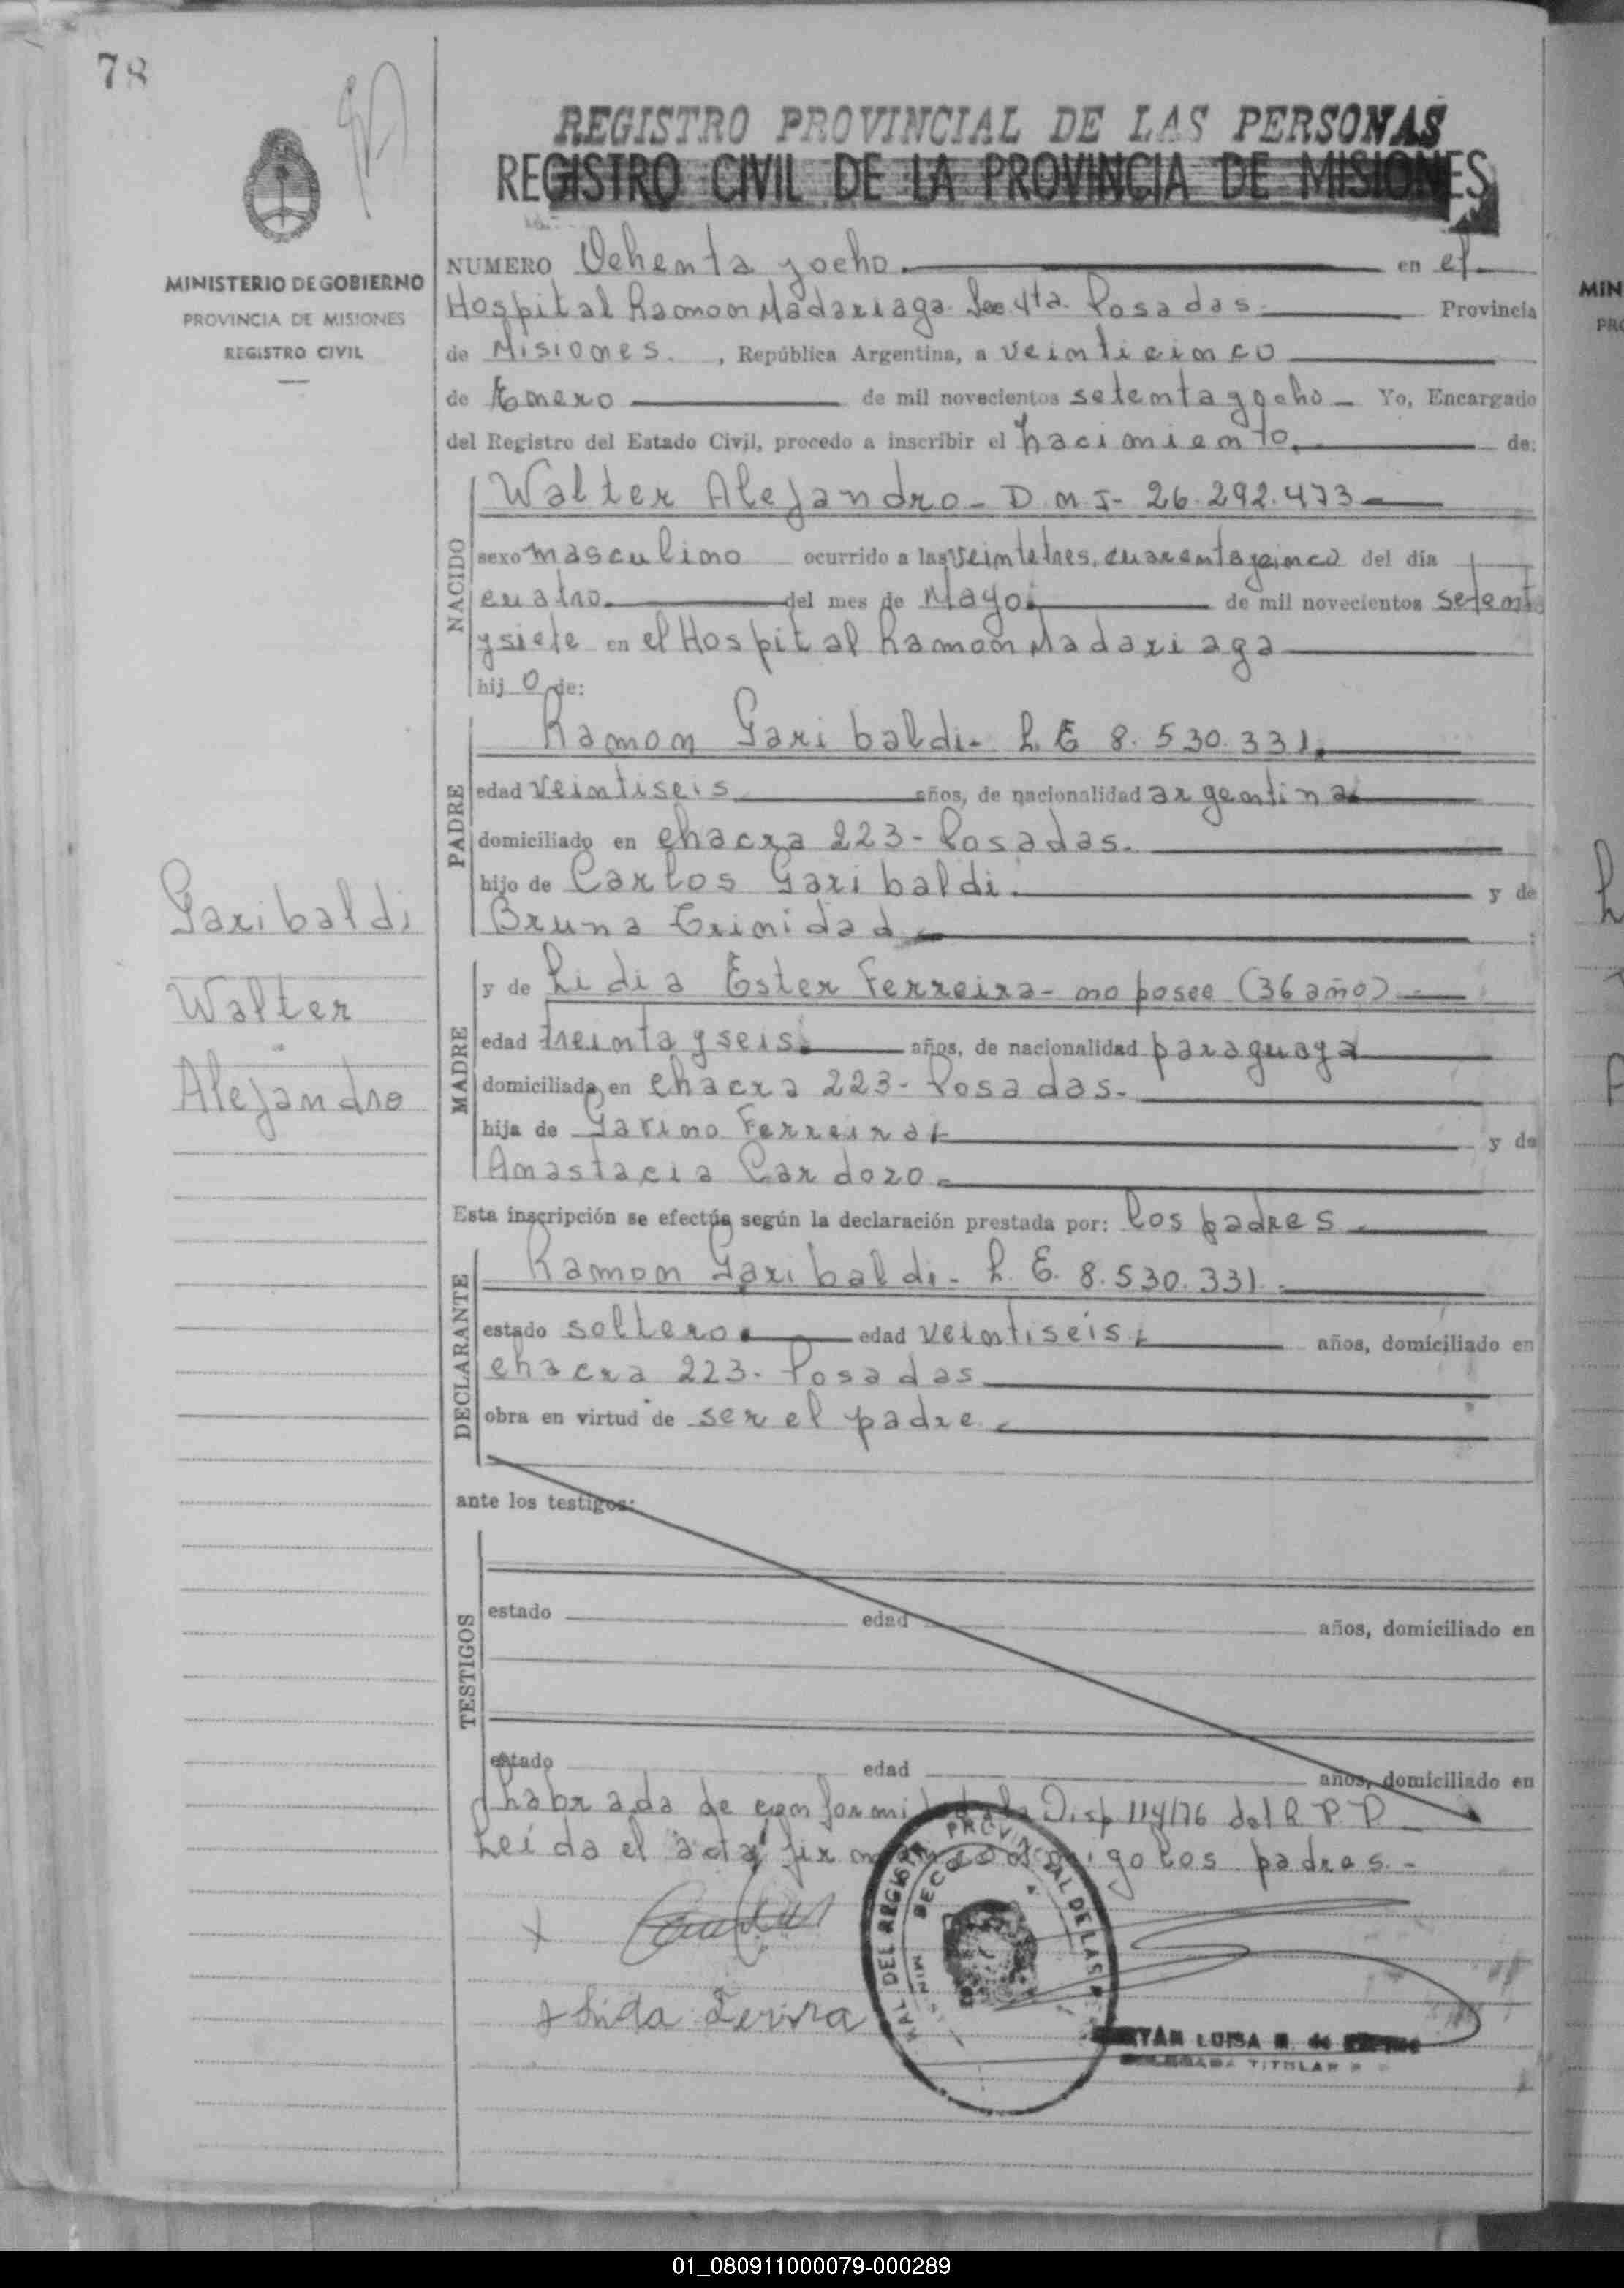 78
REGISTRO PROVINCIAL DE LAS PERSONAS
REGISTRO CIVIL DE LA PROVINCIA DE MISIONES
MINISTERIO DE GOBIERNO
PROVINCIA DE MISIONES
REGISTRO CIVIL
NUMERO Ochenta y ocho. en el
Hospital Ramon Madariaga. Sec. 4ta. Posadas Provincia
de Misiones. , República Argentina, a veinticinco
de Enero de mil novecientos setenta y ocho Yo, Encargado
del Registro del Estado Civil, procedo a inscribir el nacimiento. de:
NACIDO
Walter Alejandro - D.N.I - 26.292.473
sexo masculino ocurrido a las veintetres, cuarenta y cinco del día
cuatro. del mes de Mayo. de mil novecientos setent
y siete en el Hospital Ramon Madariaga
hij o de:
PADRE
Ramon Garibaldi - L.E 8.530.331.
edad veintiseis años, de nacionalidad argentina
domiciliado en chacra 223 - Posadas.
hijo de Carlos Garibaldi. y de
Bruna Trinidad
Garibaldi
Walter
Alejandro
MADRE
y de Lidia Ester Ferreira - no posee (36 año)
edad treinta y seis. años, de nacionalidad paraguaya
domiciliada en chacra 223 - Posadas.
hija de Gavino Ferreira y de
Anastacia Cardozo.
Esta inscripción se efectúa según la declaración prestada por: los padres.
DECLARANTE
Ramon Garibaldi - L.E. 8.530.331
estado soltero. edad veintiseis, años, domiciliado en
chacra 223. Posadas
obra en virtud de ser el padre.
ante los testigos:
TESTIGOS
estado edad años, domiciliado en
estado edad años, domiciliado en
Labrada de conformidad a la Disp. 114/76 del R.P.P.
Leída el acta, firman conmigo los padres.-
DEL REGISTRO PROVINCIAL DE LAS
LUISA
TITULAR
MIN
PRO
01_080911000079-000289